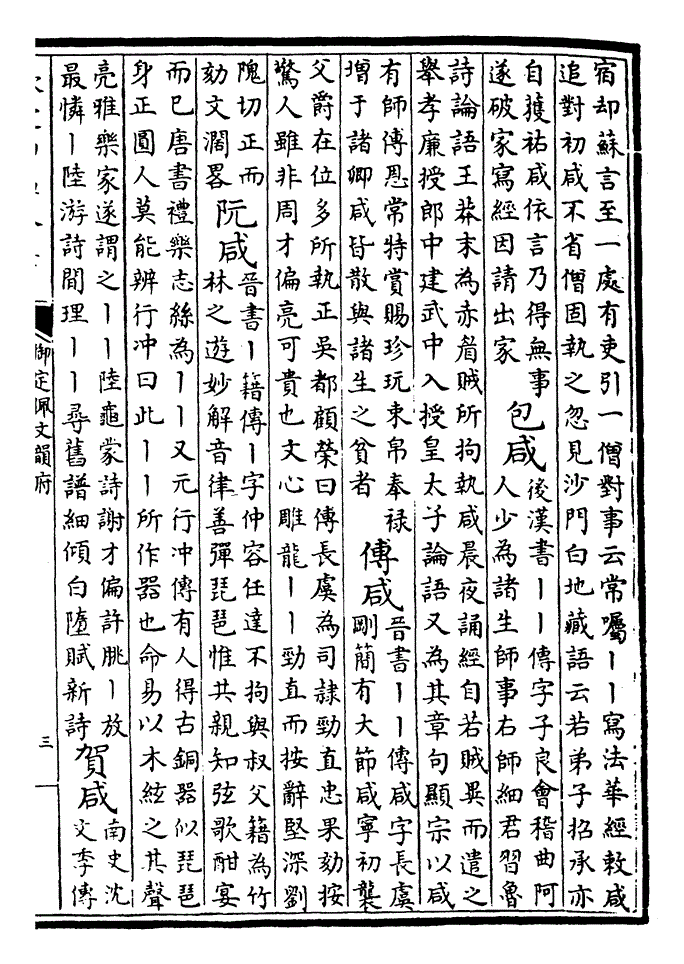 宿却蘇言至一處有吏引一僧對事云常囑丨丨寫法華經敕咸
追對初咸不省僧固執之忽見沙門白地藏語云若弟子招承亦
自獲祐咸依言乃得無事
遂破家寫經因請出家
包咸
後漢書丨丨傳字子良會稽曲阿
人少為諸生師事右師細君習魯
詩論語王莽末為赤眉賊所拘執咸晨夜誦經自若賊異而遣之
舉孝廉授郎中建武中入授皇太子論語又為其章句顯宗以咸
有師傅恩常特賞賜珍玩束帛奉祿
增于諸卿咸皆散與諸生之貧者
傅咸
晉書丨丨傳咸字長虞
剛簡有大節咸寧初襲
父爵在位多所執正吳都顧榮曰傅長虞為司隷勁直忠果劾按
驚人雖非周才偏亮可貴也文心雕龍丨丨勁直而按辭堅深劉
隗切正而
劾文濶畧
阮咸
晉書丨籍傳丨字仲容任達不拘與叔父籍為竹
林之遊妙解音律善彈琵琶惟共親知弦歌酣宴
而已唐書禮樂志絲為丨丨又元行冲傳有人得古銅器似琵琶
身正圓人莫能辨行冲曰此丨丨所作器也命易以木絃之其聲
亮雅樂家遂謂之丨丨陸龜蒙詩謝才偏許朓丨放
最憐丨陸游詩閒理丨丨尋舊譜細傾白墮賦新詩
賀咸
南史沈
文季傳
御定佩文韻府
三